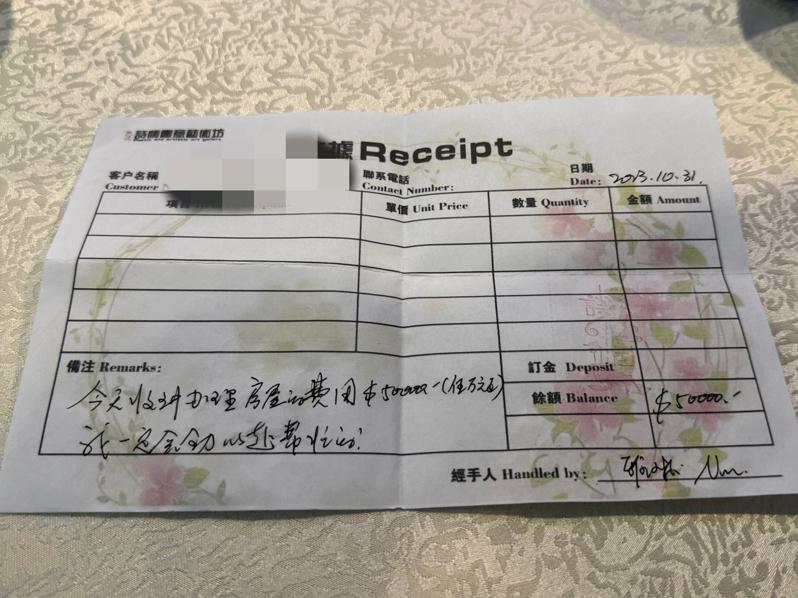 詩情畫意藝術坊
據 Receipt
客户名稱
Customer
聯系電話
Contact Number:
日期
Date: 2023.10.31.
項
單價 Unit Price
數量 Quantity
金額 Amount
備注 Remarks:
今天收到办理房屋的费用$50000-(伍万元正)
我一定全力以赴帮忙的!
訂金 Deposit
餘額 Balance $50000.-
經手人 Handled by: